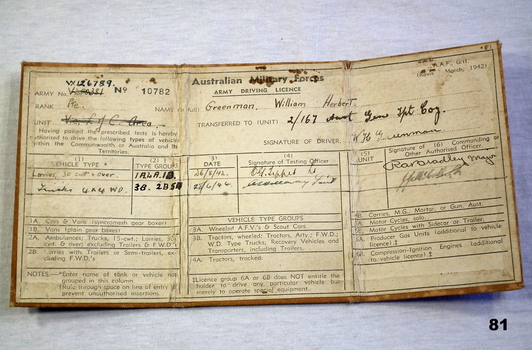 VX126759
ARMY No. Nº 10782
RANK Pte.
UNIT
Having passed the prescribed tests is hereby
authorised to drive the following types of vehicles
within the Commonwealth of Australia and its
Territories.
(1) (2)
VEHICLE TYPE * GROUPS
Lorries, 30 cwt & over. 1A 2A 1B
Trucks 4x4 W.D. 3B. 2B
1A. Cars & Vans (synchromesh gear boxes)
1B. Vans (plain gear boxes)
2A. Ambulances; Trucks, 15-cwt.; Lorries, 30
cwt. & over) excluding Trailers & F.W.D's
2B. Lorries with Trailers or Semi-trailers, ex-
cluding F.W.D.'s
NOTES —*Enter name of tank or vehicle not
grouped in this column
†Rule through space on line of entry to
prevent unauthorised insertions.
Australian Military Forces
ARMY DRIVING LICENCE
NAME (in full) Greenman. William Herbert.
TRANSFERRED TO (UNIT) 2/167 Aust Gen Tpt Coy.
SIGNATURE OF DRIVER. W H Greenman
(3) (4)
DATE Signature of Testing Officer
26/5/42.
VEHICLE TYPE GROUPS
3A. Wheeled A.F.V.'s & Scout Cars.
3B. Tractors, wheeled; Tractors, Arty.; F.W.D.;
W.D. Type Trucks, Recovery Vehicles and
Transporters, including Trailers.
4A. Tractors, tracked.
‡Licence group 6A or 6B does NOT entitle the
holder to drive any particular vehicle but
merely to operate special equipment.
March, 1942)
(5) (6)
UNIT Signature of Commanding or
Other Authorised Officer.
Major
4B. Carriers, M.G., Mortar, or Gun, Aust.
5A. Motor Cycles, solo.
5B. Motor Cycles with Sidecar or Trailer.
6A. Producer Gas Units (additional to vehicle
licence) ‡
6B. Compression-Ignition Engines (additional
to vehicle licence) ‡
81